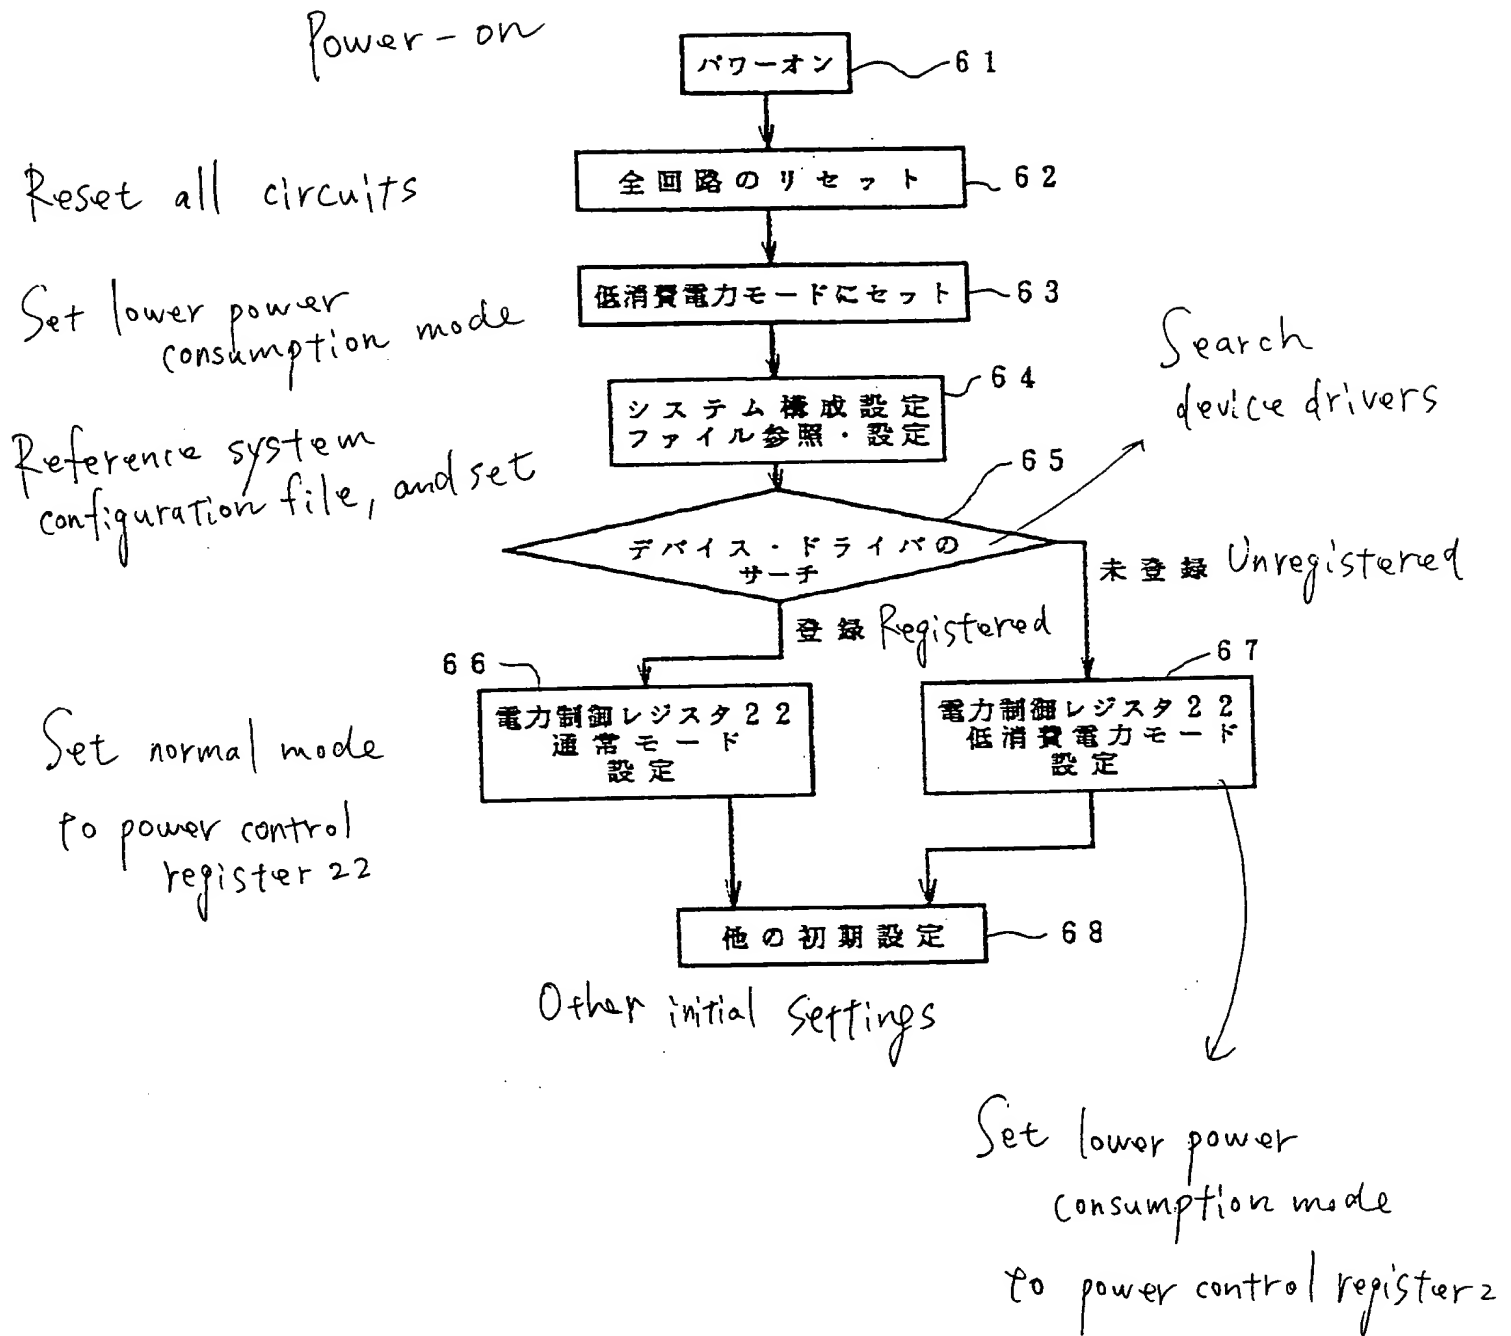 Power-on
パワーオン
61
Reset all circuits
全回路のリセット
62
Set lower power
consumption mode
低消費電力モードにセット
63
Reference system
configuration file, and set
システム構成設定
ファイル参照・設定
64
Search
device drivers
65
デバイス・ドライバの
サーチ
未登録 Unregistered
登録 Registered
66
電力制御レジスタ22
通常モード
設定
67
電力制御レジスタ22
低消費電力モード
設定
Set normal mode
to power control
register 22
他の初期設定
68
Other initial settings
Set lower power
consumption mode
to power control register 2